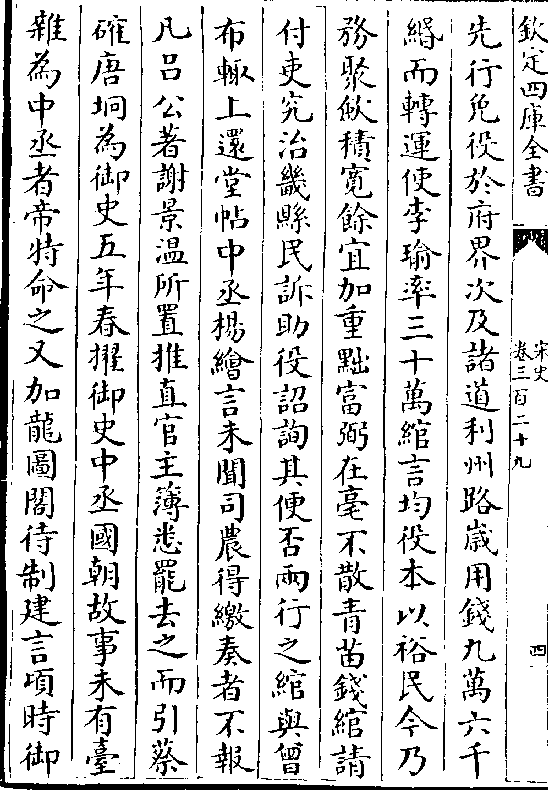 欽定四庫全書
宋史
卷三百二十九
四
先行免役於府界次及諸道利州路歳用錢九萬六千
緡而轉運使李瑜率三十萬綰言均役本以裕民今乃
務聚歛積寛餘宜加重黜富弼在亳不散青苗錢綰請
付吏究治畿縣民訴助役詔詢其便否兩行之綰與曾
布輙上還堂帖中丞楊繪言未聞司農得繳奏者不報
凡吕公著謝景温所置推直官主簿悉罷去之而引蔡
確唐坰為御史五年春擢御史中丞國朝故事未有臺
雜為中丞者帝特命之又加龍圖閣待制建言頃時御